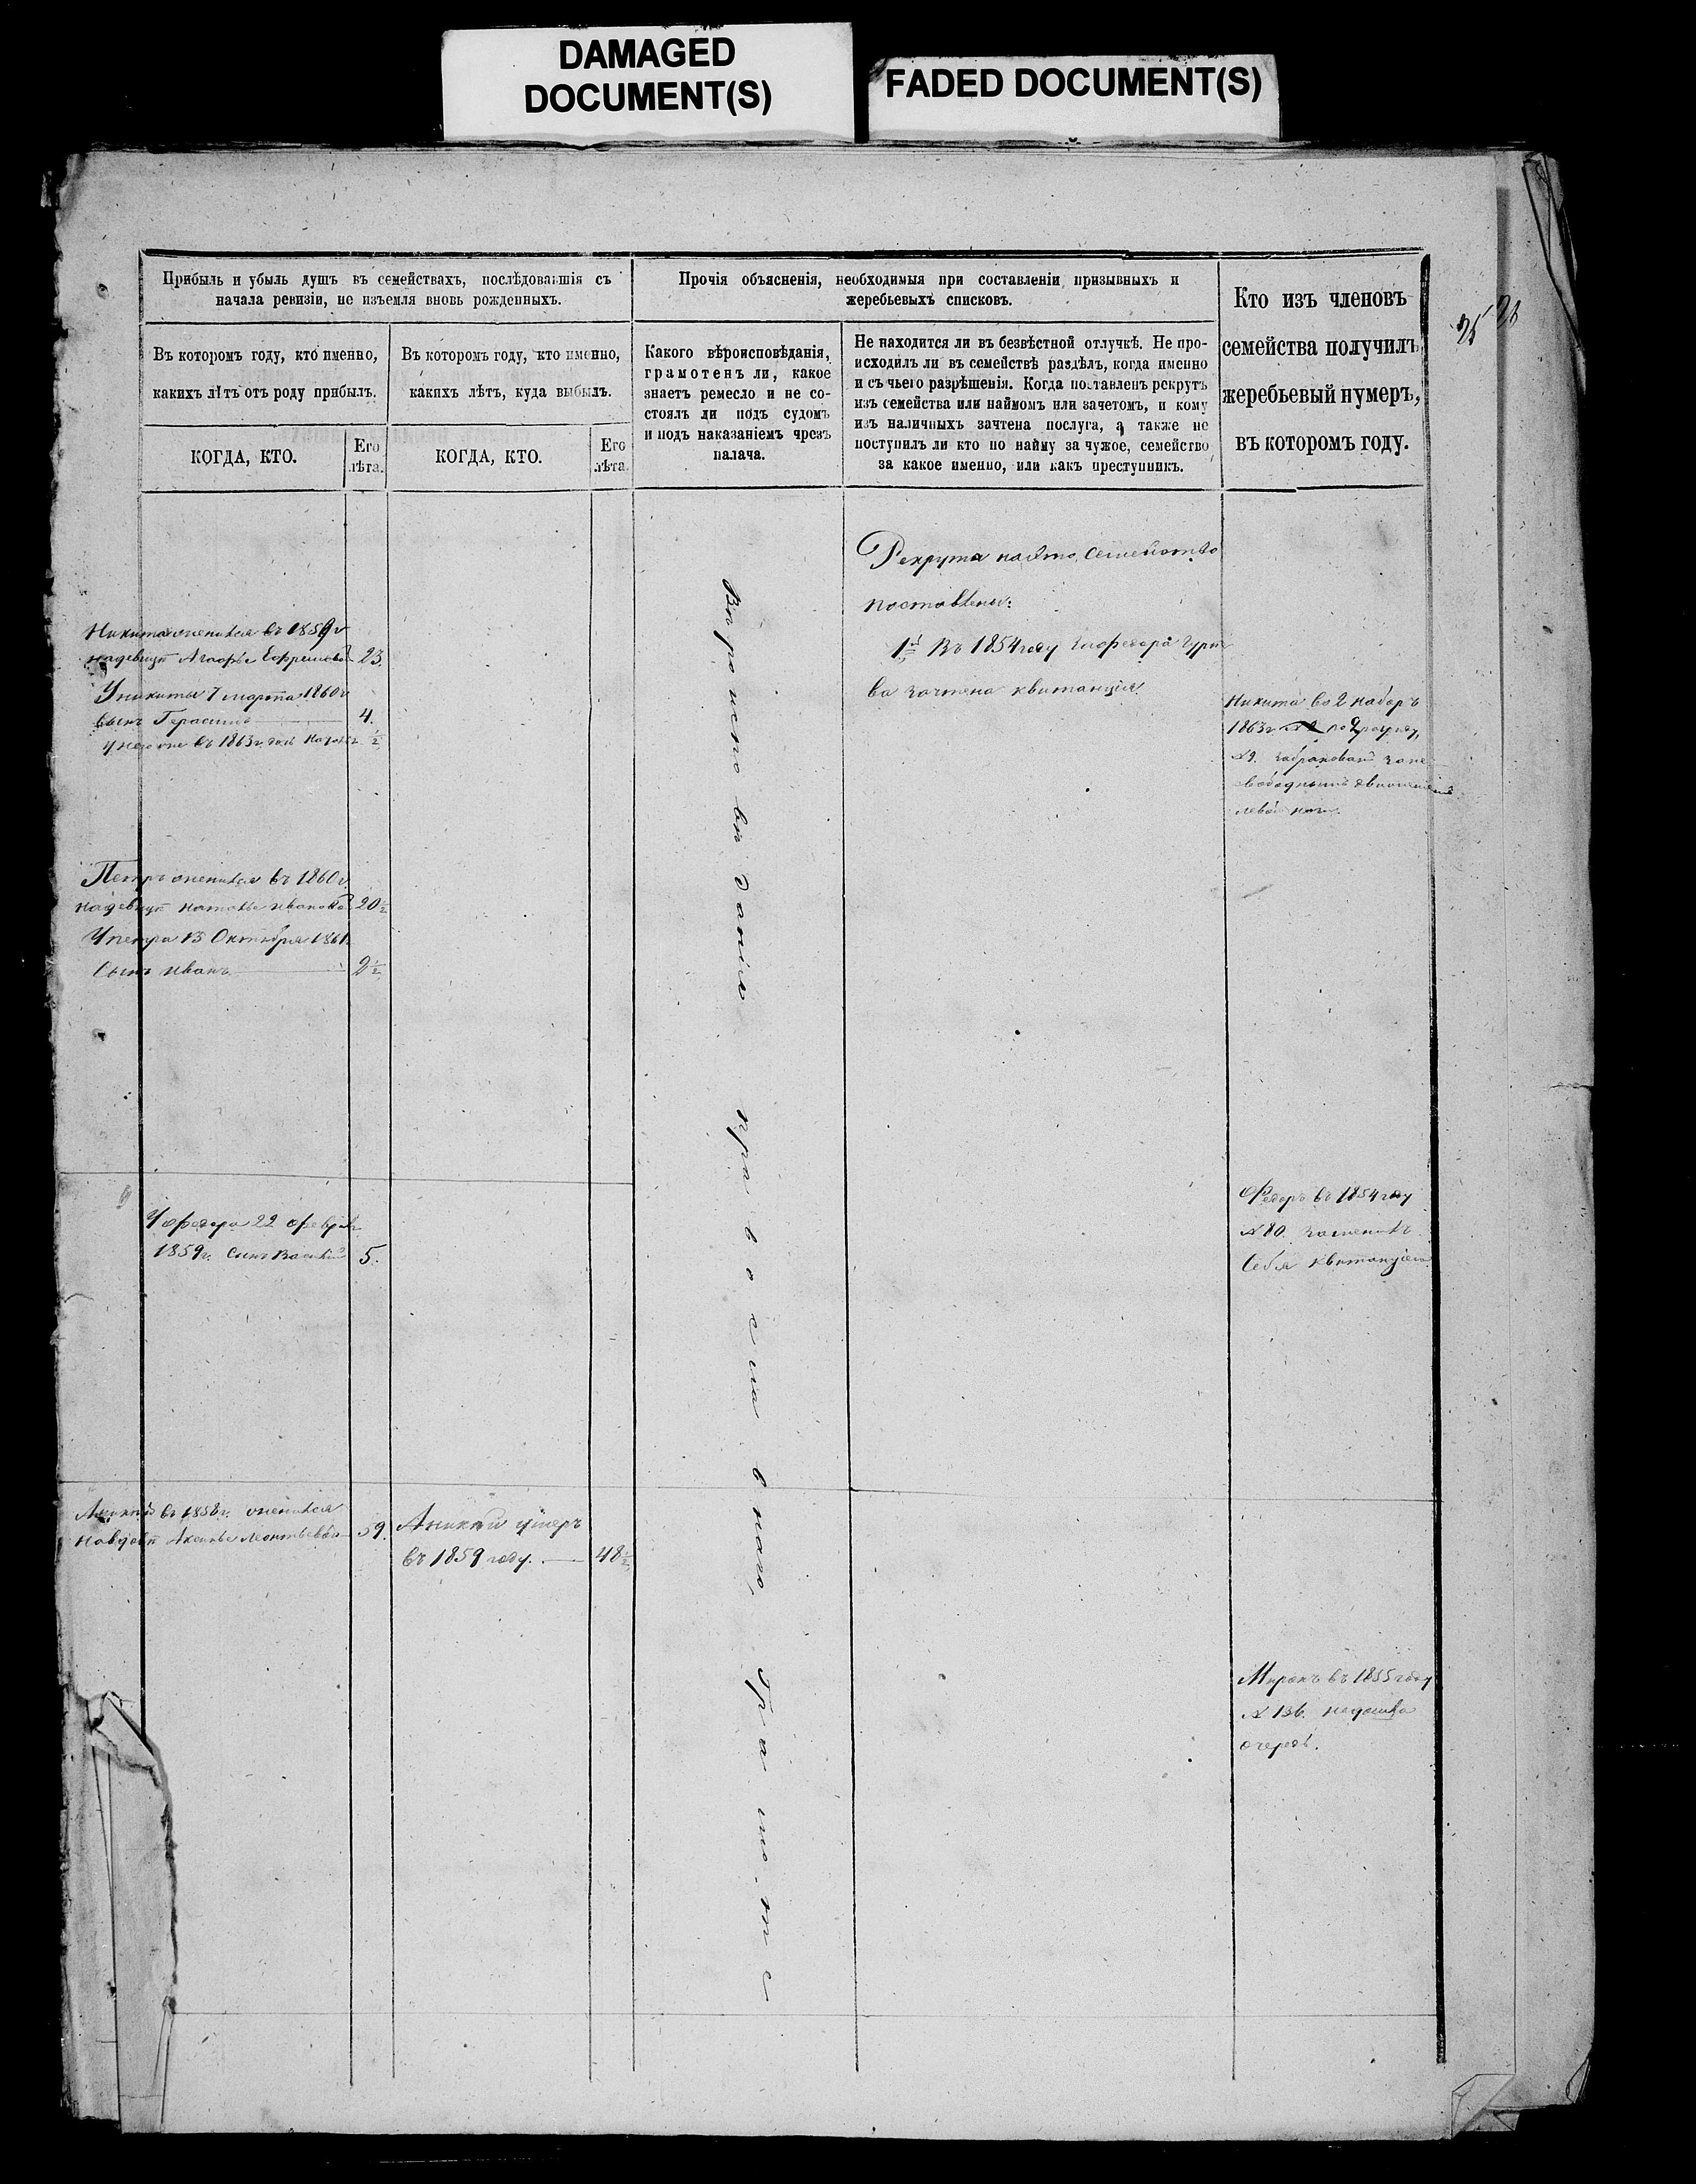 DAMAGED
DOCUMENT(S)
FADED DOCUMENT(S)
Прибыль и убыль душъ въ семействахъ, послѣдовавшія съ
начала ревизіи, не изъемля вновь рожденныхъ.
Въ которомъ году, кто именно,
какихъ лѣтъ отъ роду прибылъ.
КОГДА, КТО.
Его
лѣта.
Въ которомъ году, кто именно,
какихъ лѣтъ, куда выбылъ.
КОГДА, КТО.
Его
лѣта.
Прочія объясненія, необходимыя при составленіи призывныхъ и
жеребьевыхъ списковъ.
Какого вѣроисповѣданія,
грамотенъ ли, какое
знаетъ ремесло и не со-
стоялъ ли подъ судомъ
и подъ наказаніемъ чрезъ
палача.
Не находится ли въ безвѣстной отлучкѣ. Не про-
исходилъ ли въ семействѣ раздѣлъ, когда именно
и съ чьего разрѣшенія. Когда поставленъ рекрутъ
изъ семейства или наймомъ или зачетомъ, и кому
изъ наличныхъ зачтена послуга, а также не
поступилъ ли кто по найму за чужое, семейство
за какое именно, или какъ преступникъ.
Кто изъ членовъ
семейства получилъ
жеребьевый нумеръ,
въ которомъ году.
Никита женился въ 1859 г
надевицѣ Агафье Ефремовой 23.
У никиты 7 марта 1860 г
сынъ Герасимъ 4.
у него же въ 1863 г.
Петръ женился въ 1860 г.
надевицѣ наталье ивановой 20½
У петра 13 Октября 1861
Сынъ иванъ 2½
У федора 22 февраля
1859 г. сынъ Василій 5.
въ 1858 г. женился
на вдовѣ Аксинье Леонтьевой 39.
умеръ
въ 1859 году. 48½
Вѣроисповѣданія православнаго, грамоте
Рекрута на это семейство
поставлены:
1й Въ 1854 году
ва зачтена квитанція.
Никита во 2 наборъ
1863 г
№ 9. забракованъ за не
свободнымъ движеніемъ
левой ноги.
Федоръ въ 1854 году
№ 80. заменилъ
себя квитанціею
Миронъ въ 1855 году
№ 136. недошла
очередь.